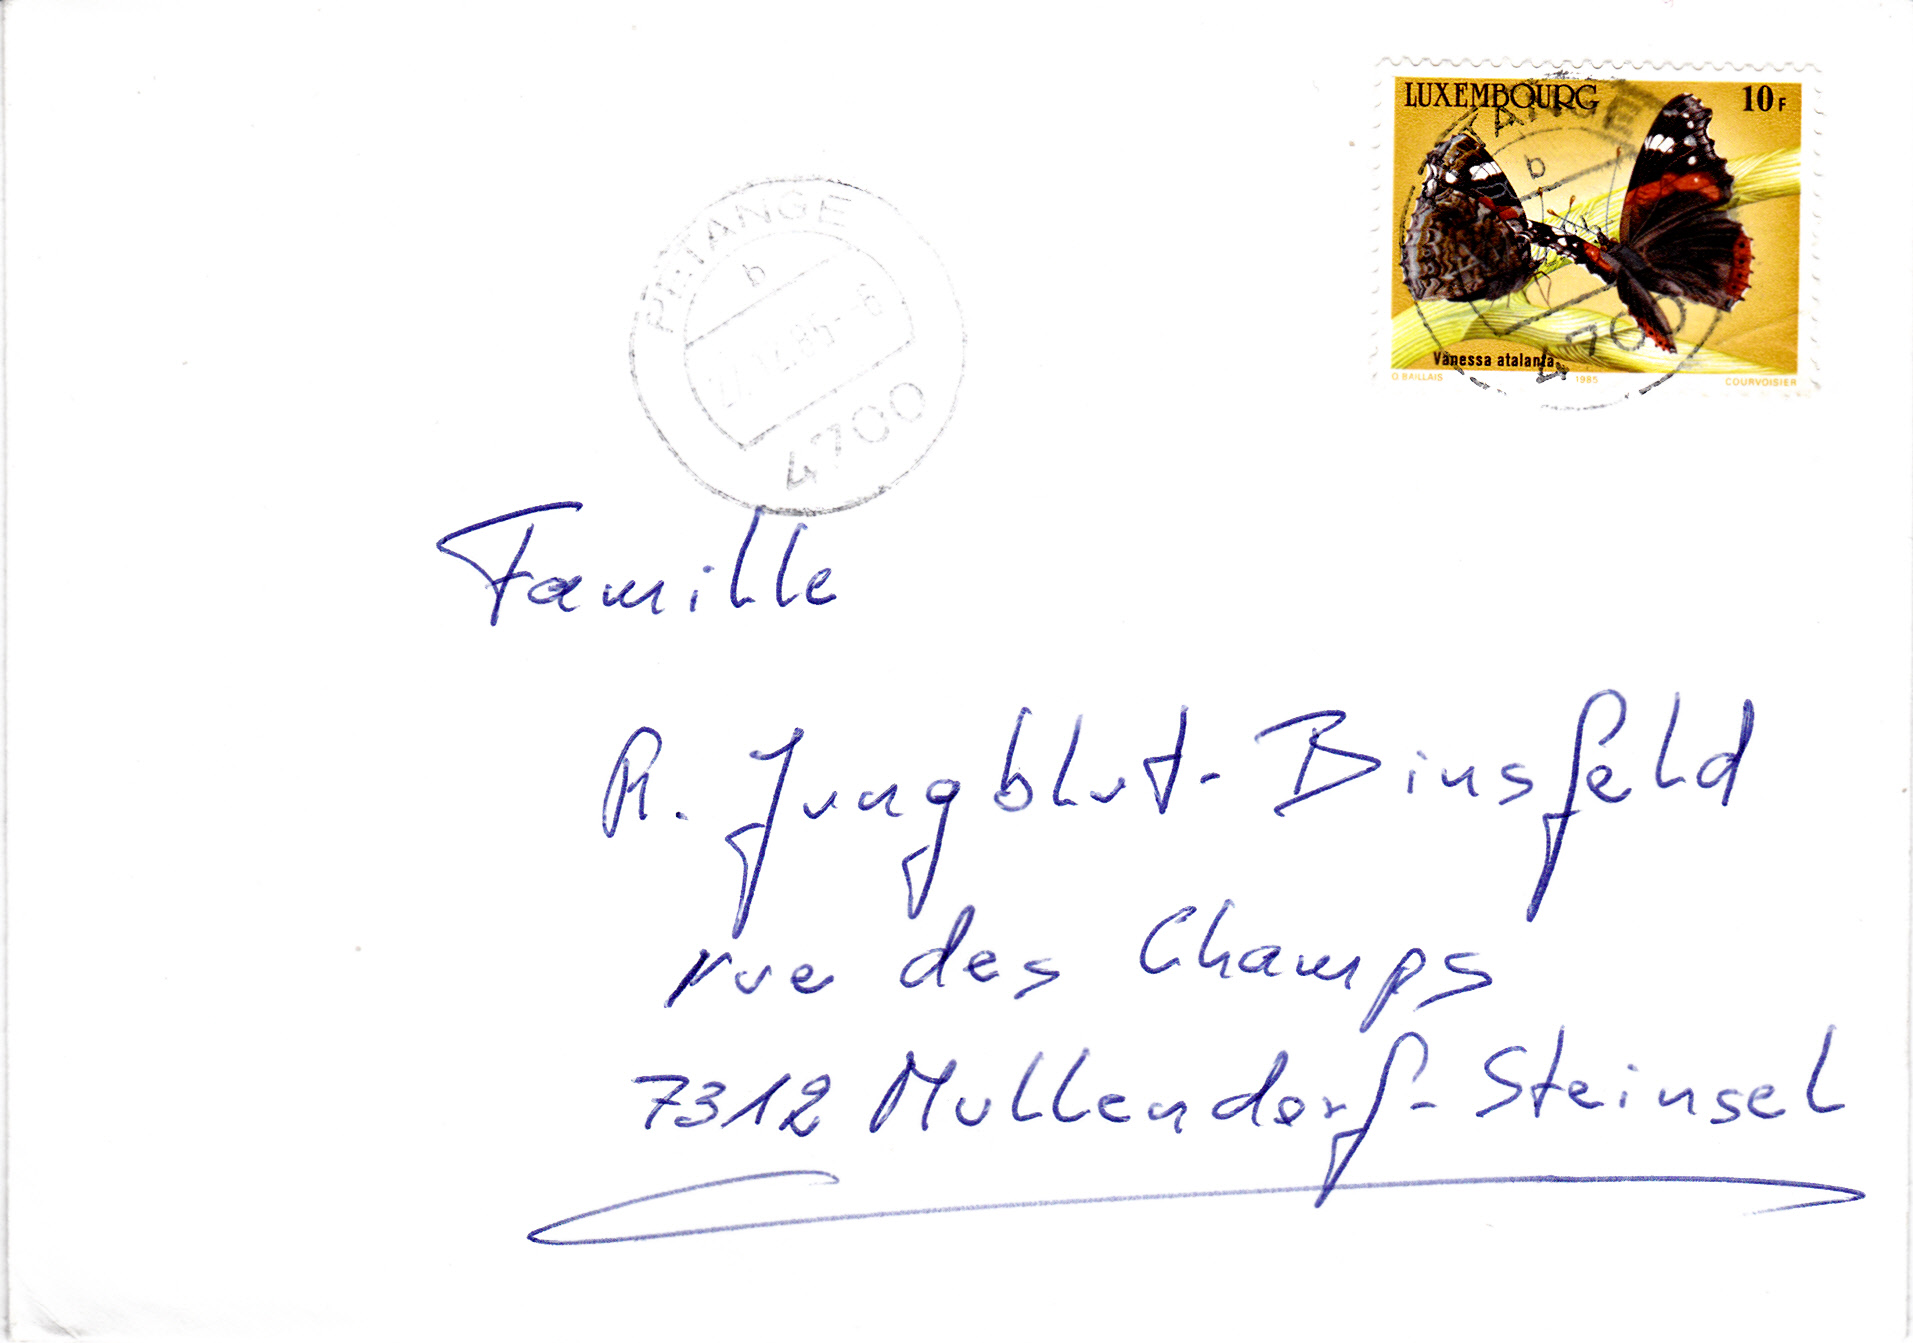 LUXEMBOURG 10F
Vanessa atalanta
O. BAILLAIS 1985 COURVOISIER
TANGE
b
4700
PETANGE
b
4700
Famille
R. Jungblut-Binsfeld
rue des Champs
7312 Mullendorf-Steinsel